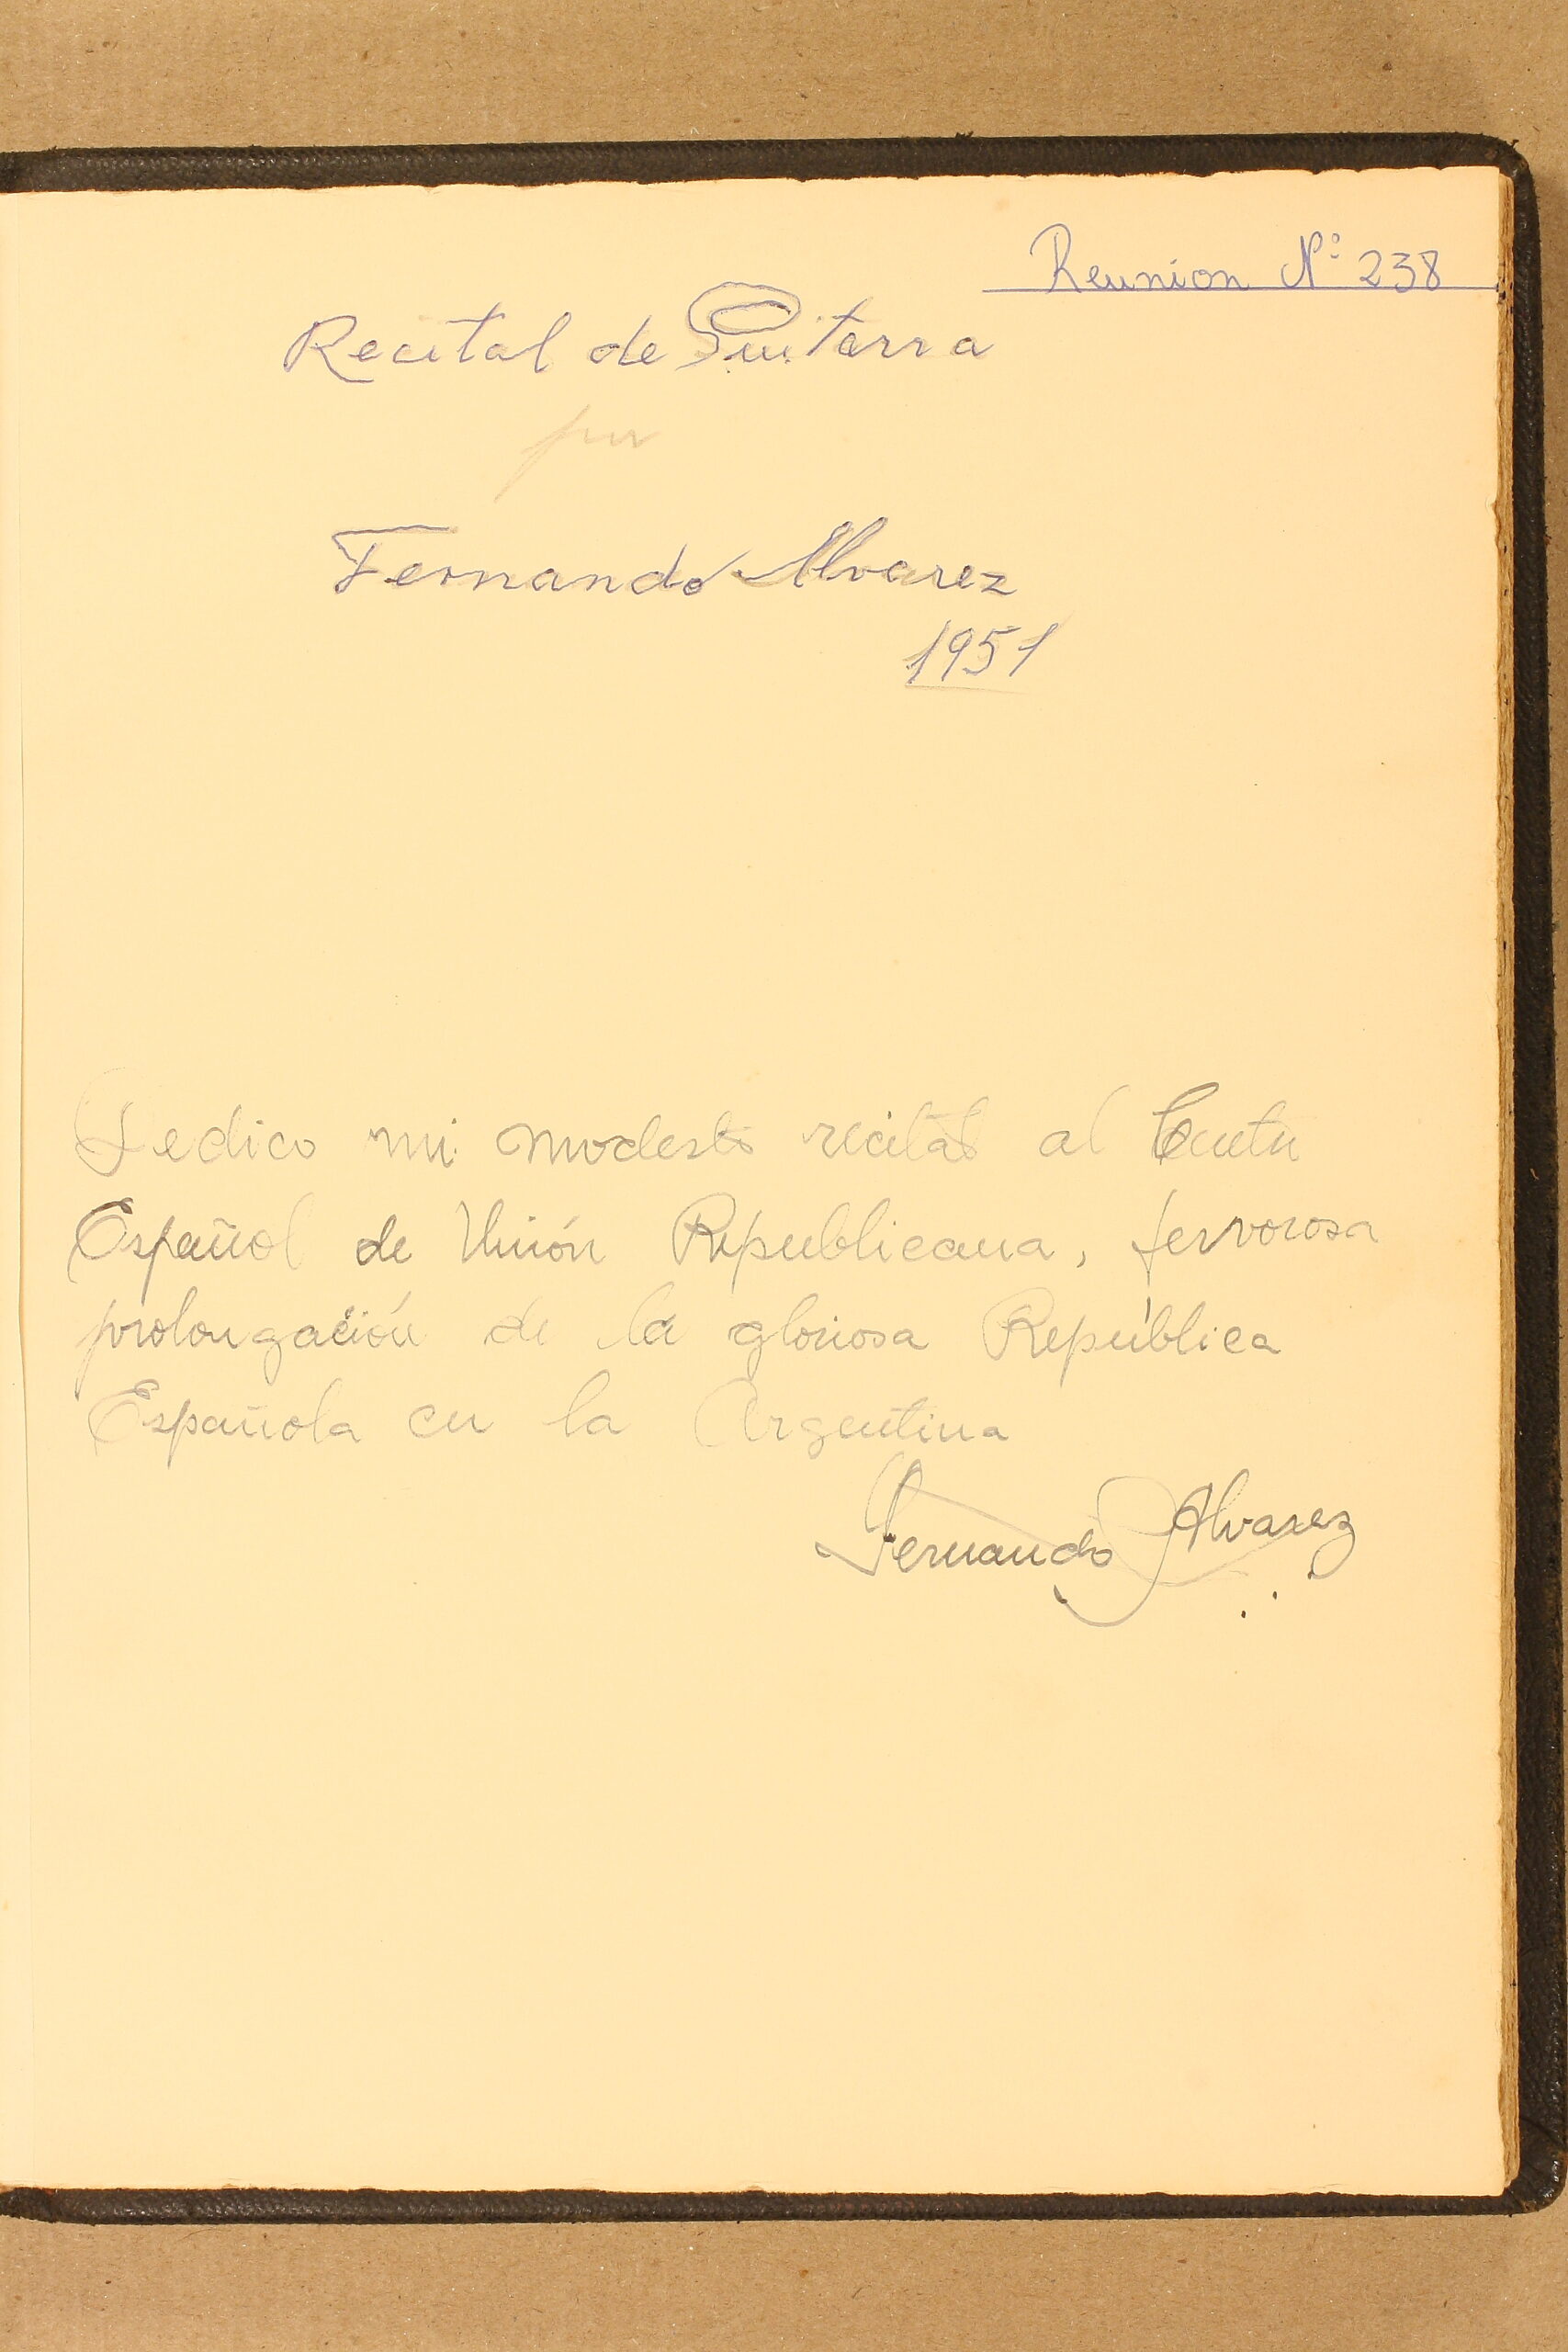 Reunion Nº 238
Recital de Guitarra
por
Fernando Alvarez
1951
Dedico mi modesto recital al Centro
Español de Unión Republicana, fervorosa
prolongación de la gloriosa República
Española en la Argentina
Fernando Alvarez